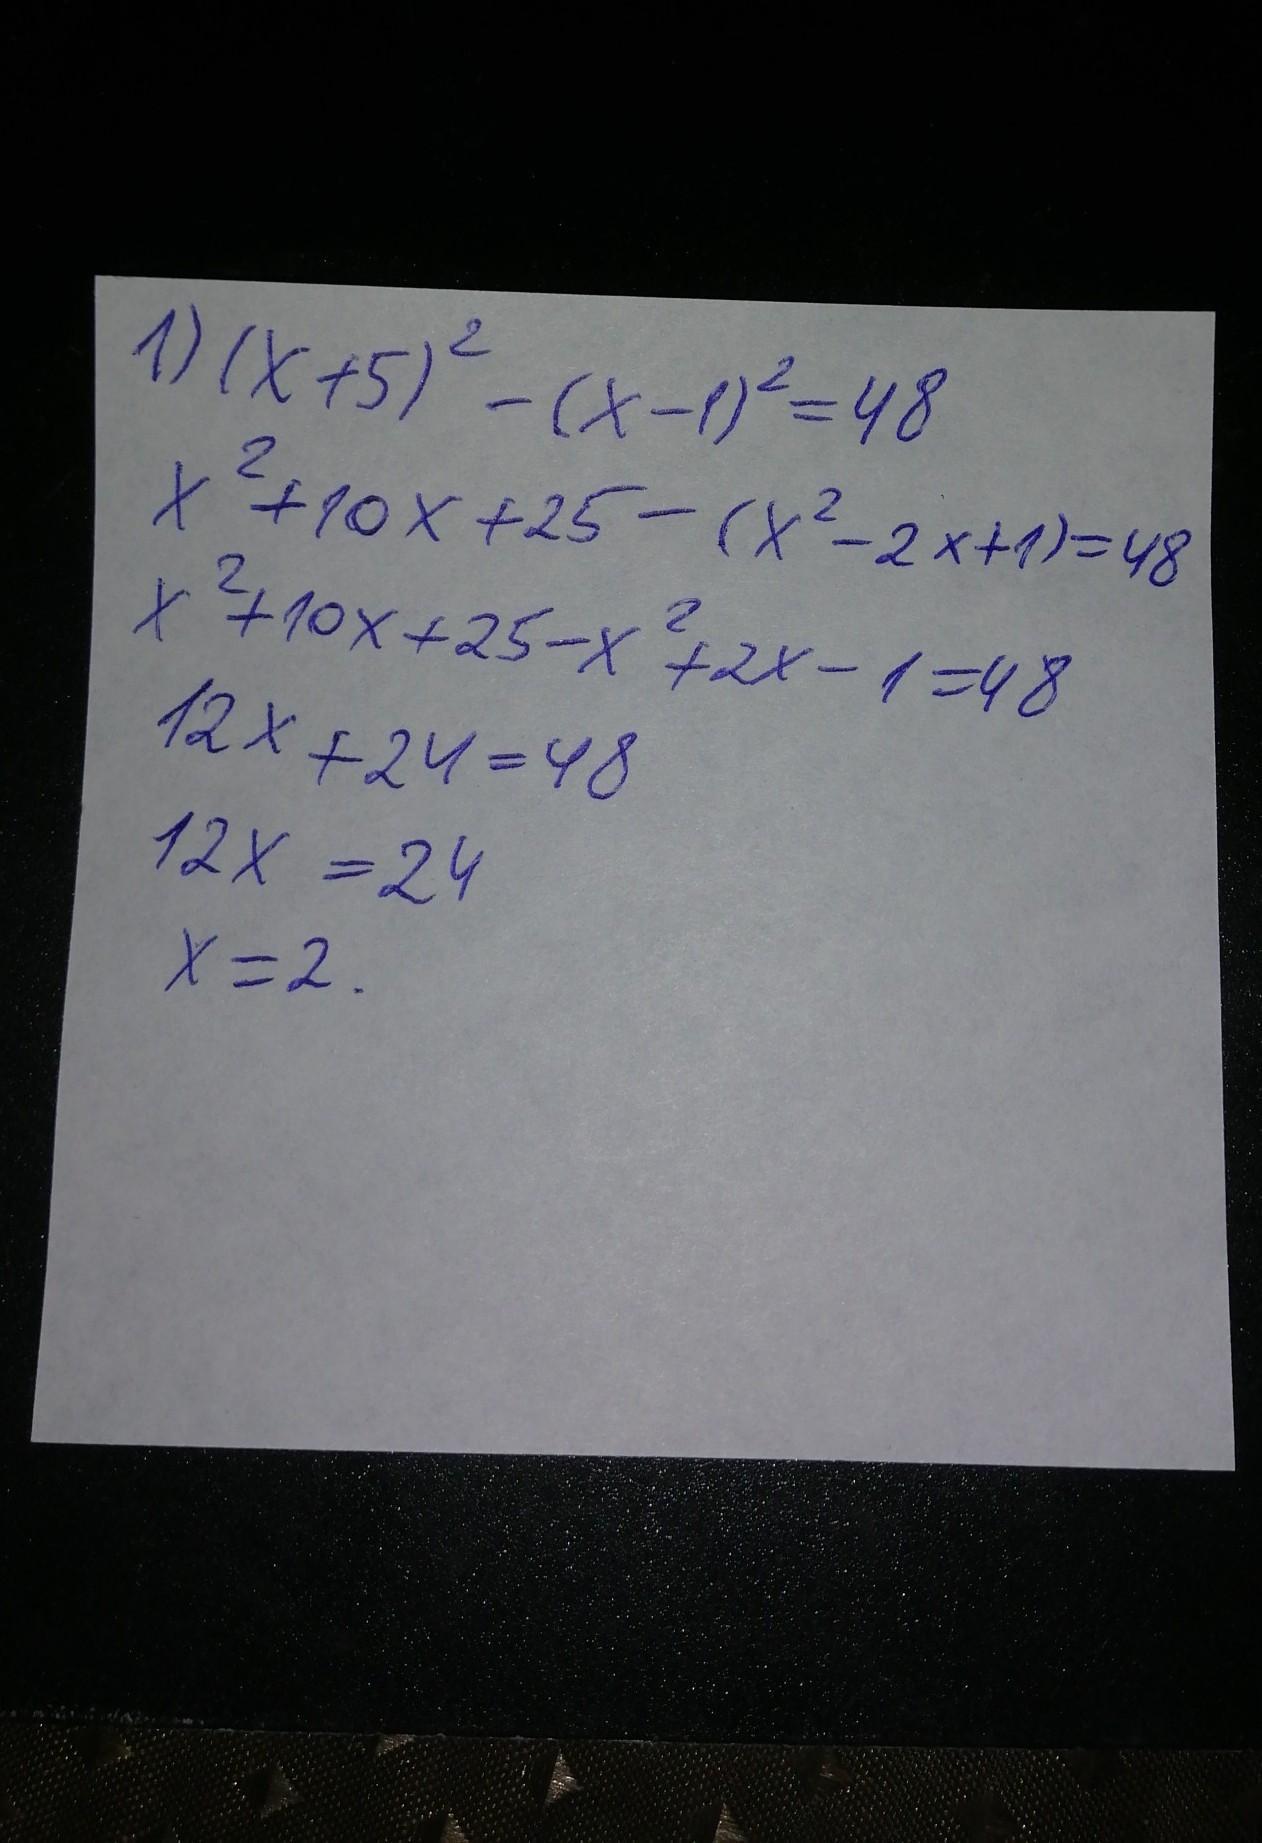 1) (x+5)² - (x-1)² = 48
x² + 10x + 25 - (x² - 2x + 1) = 48
x² + 10x + 25 - x² + 2x - 1 = 48
12x + 24 = 48
12x = 24
x = 2.